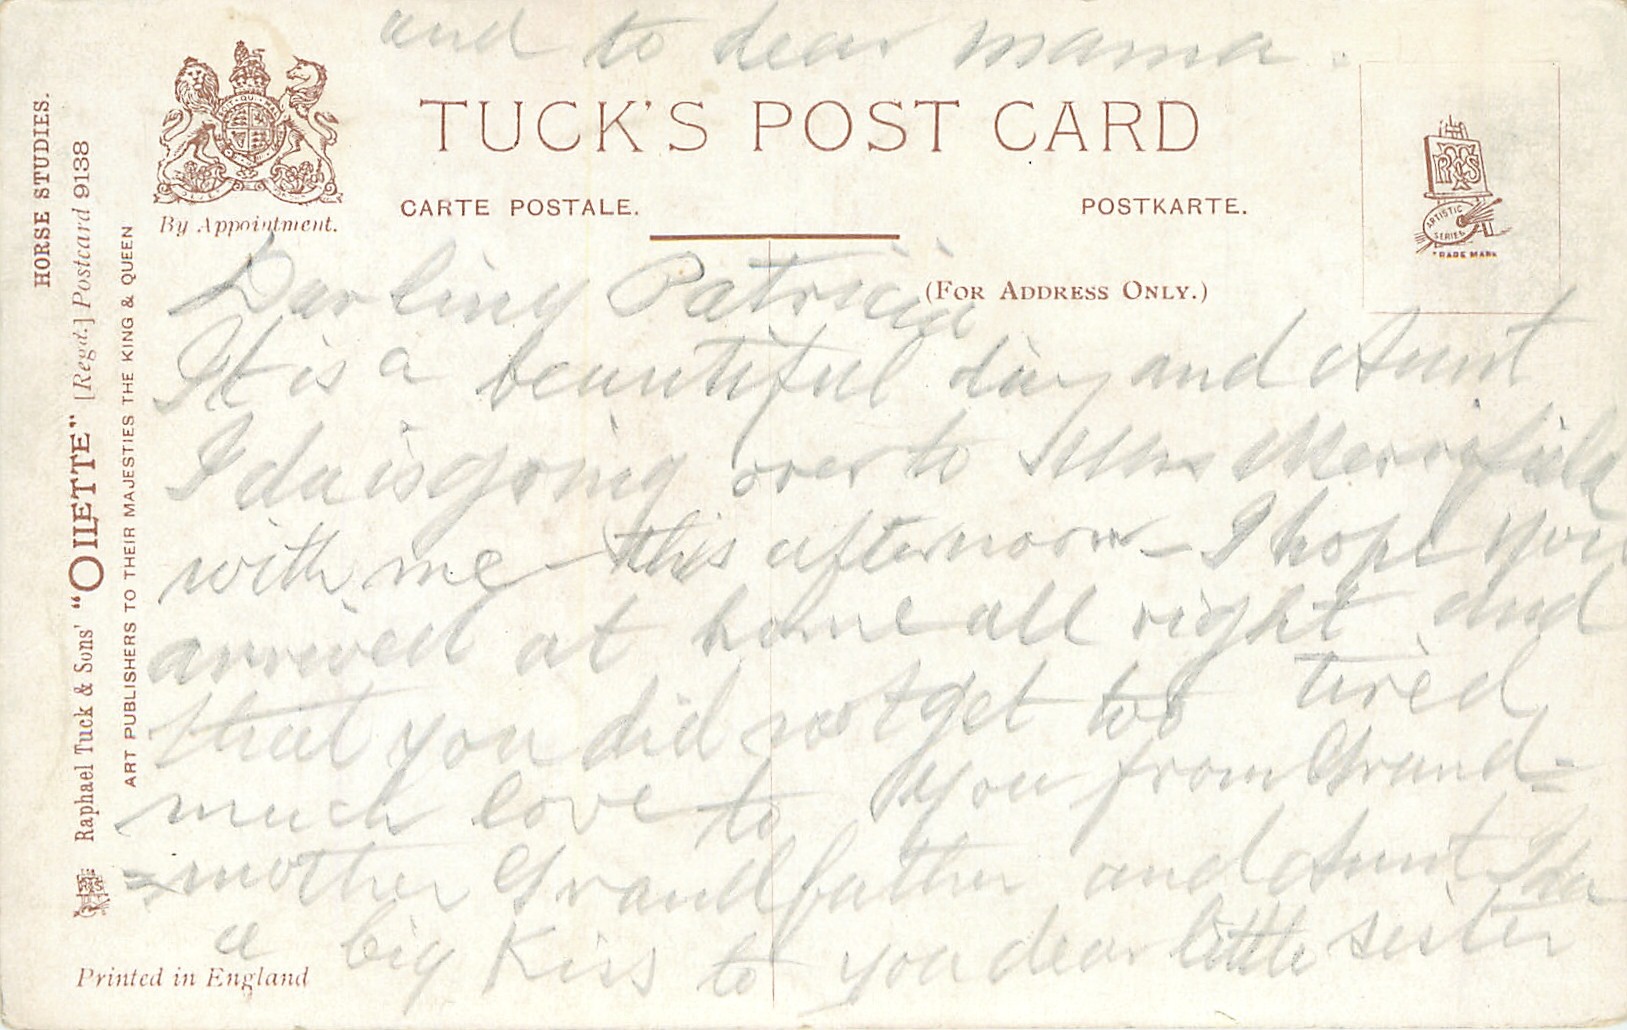 and to dear mama.
TUCK'S POST CARD
CARTE POSTALE.
POSTKARTE.
By Appointment.
(FOR ADDRESS ONLY.)
RTS
ARTISTIC SERIES
TRADE MARK
HORSE STUDIES.
Raphael Tuck & Sons' "OILETTE" [Regd.] Postcard 9138
ART PUBLISHERS TO THEIR MAJESTIES THE KING & QUEEN
Darling Patricia
It is a beautiful day and Aunt
Ida is going over to Mrs Merrifield
with me this afternoon – I hope you
arrived at home all right and
that you did not get too tired
much love to you from Grand=
=mother Grandfather and Aunt Ida
a big Kiss to you dear little sister
Printed in England